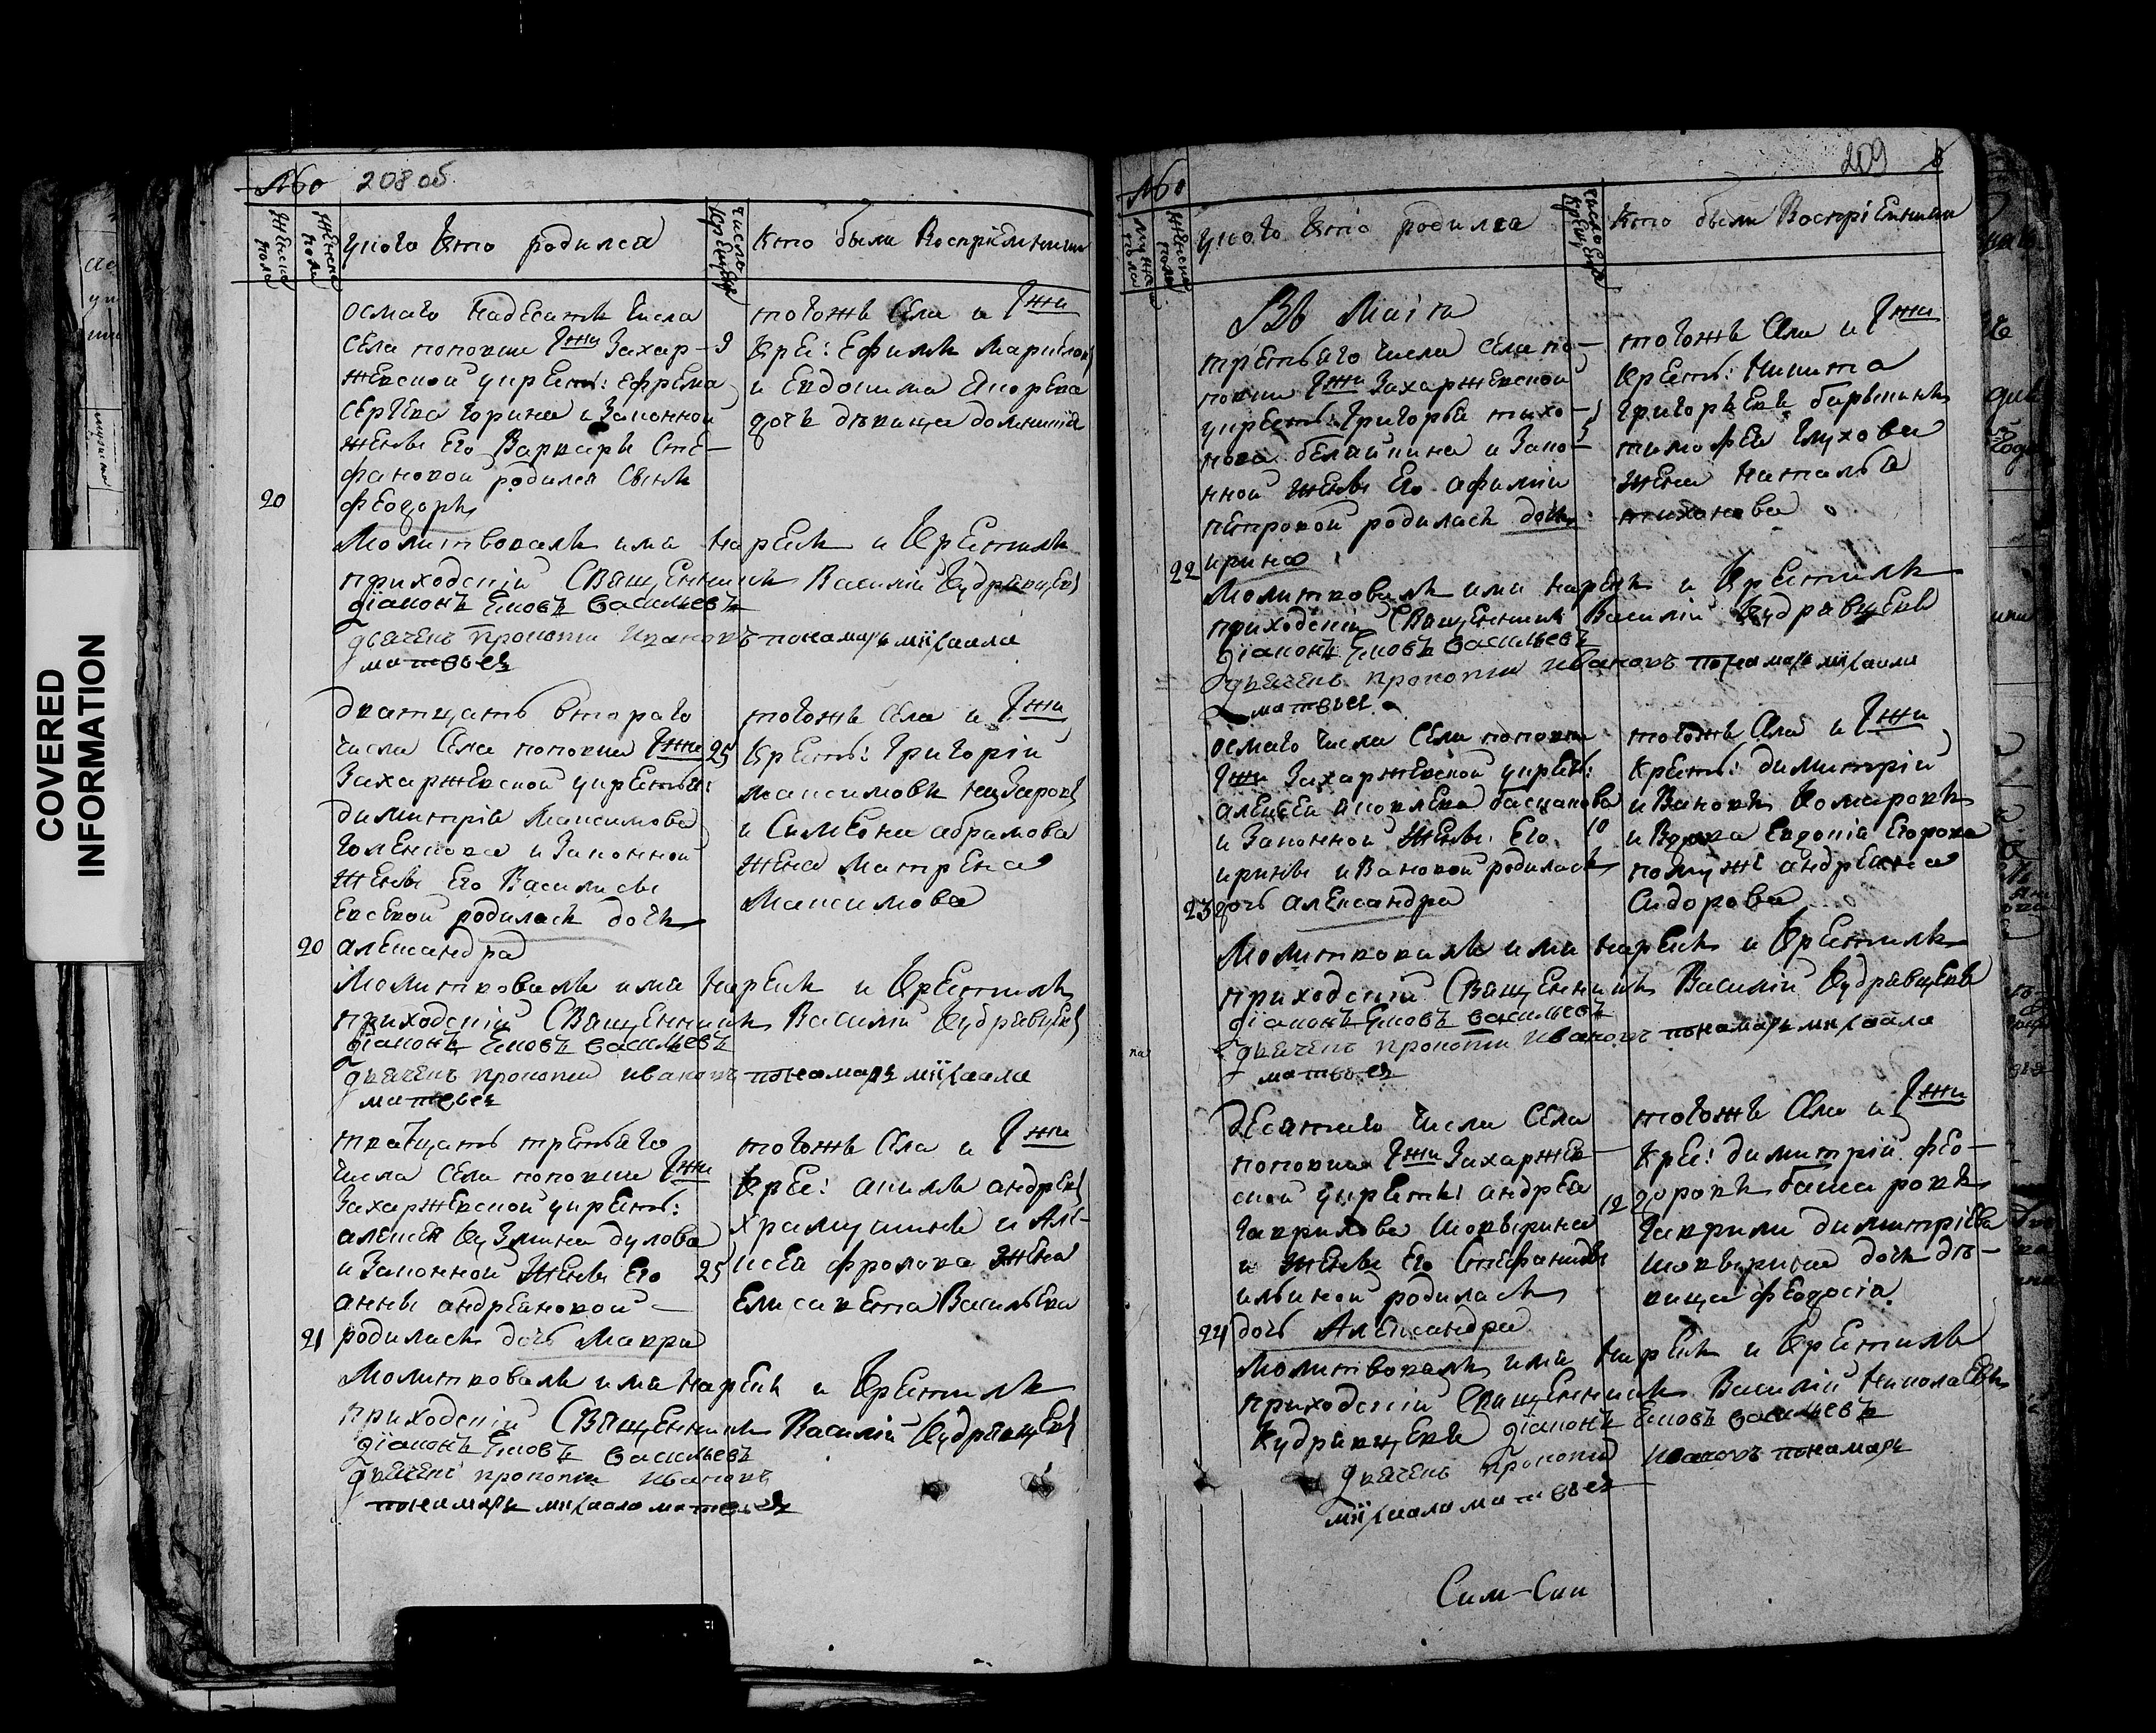 COVERED
INFORMATION
№ 208 об
Женска пола
Женска пола
у кого кто родился
число крещенія
кто были Воспріемники
осмаго надесять числа
села поповки Гжи Захар-
жевской у крест: Ефрема
Сергѣева горина и законной
женѣ Его Варвары Сте-
фановой родился Сынъ
20 Феодоръ
9
тогожъ села и Гжи
Кре: Ефимъ
и Евдокима
дочь дѣвица домникія
Молитвовалъ имя нарекъ и Крестилъ
приходскій Священникъ Василій Кудрявцевъ
діаконъ Іяковъ васильевъ
дьячекъ прокопій Ивановъ понамарь михаила
матвѣев
дватцать втораго
числа Села поповки Гжи
Захаржевской у крестья:
димитрія Максимова
голенкова и Законной
женѣ Его Василисы
Евсевой родилась дочь
20 александра
25
тогожъ села и Гжи
Крестъ: Григорій
Максимовъ
и Симеона абрамова
жена Матрена
Максимова
Молитвовалъ имя нарекъ и Крестилъ
приходскій Священникъ Василій Кудрявцевъ
діаконъ Іяковъ васильевъ
дьячекъ прокопій ивановъ понамарь михаила
матвѣев
тватцать третьяго
числа села поповки Гжи
Захаржевской у крестъ:
алексея Кузмина дулова
и Законной Женѣ Его
анны андреяновой
21 родилась дочь Мавра
25
тогожъ села и Гжи
Кре: акимъ андреевъ
храмушинъ и Але-
ксея фролова жена
Елисавета Васильева
Молитвовалъ имя нарекъ и Крестилъ
приходскій Священникъ Василій Кудрявцевъ
діаконъ Іяковъ васильевъ
дьячекъ прокопій Ивановъ
понамарь михаила матвѣев
№ 209
Мужска пола
Женска пола
у кого кто родился
число крещенія
кто были Воспріемники
Въ Маія
третьяго числа села по-
повки Гжи Захаржевской
у крестъ: Григорья тихо-
нова белайкина и Зако-
нной женѣ Его афиміи
петровой родилась дочь
22 ирина
5
тогожъ села и Гжи
Крестъ: Никита
григорьевъ барышникъ
тимофея глухова
жена наталья
тихонова
Молитвовалъ имя нарекъ и Крестилъ
приходскій Священникъ Василій Кудрявцевъ
діаконъ Іяковъ васильевъ
дьячекъ прокопій Ивановъ понамарь михаила
матвѣев
осмаго числа села поповки
Гжи Захаржевской у крест:
алексея яковлева басманова
и Законной Женѣ Его
ирины ивановой родилась
23 дочь александра
10
тогожъ села и Гжи
Крестъ: димитрій
ивановъ комаровъ
и вдова Евдокія Егорова
по мужѣ андреяна
Сидорова
Молитвовалъ имя нарекъ и Крестилъ
приходскій Священникъ Василій Кудрявцевъ
діаконъ Іяковъ васильевъ
дьячекъ прокопій Ивановъ понамарь михаила
матвѣев
десятаго числа села
поповки Гжи Захаржев-
ской у крестъ: андрея
гаврилова шокырина
и женѣ Его Стефаниды
ильиной родилась
24 дочь Александра
12
тогожъ села и Гжи
Кре: димитрій фео-
доровъ башаровъ
гаврилы димитріева
шокырина дочь дѣ-
вица феодосія
Молитвовалъ имя нарекъ и Крестилъ
приходскій Священникъ Василій Николаевъ
Кудрявцевъ діаконъ Іяковъ васильевъ
дьячекъ прокопій Ивановъ понамарь
михаила матвѣев
Сим-Син